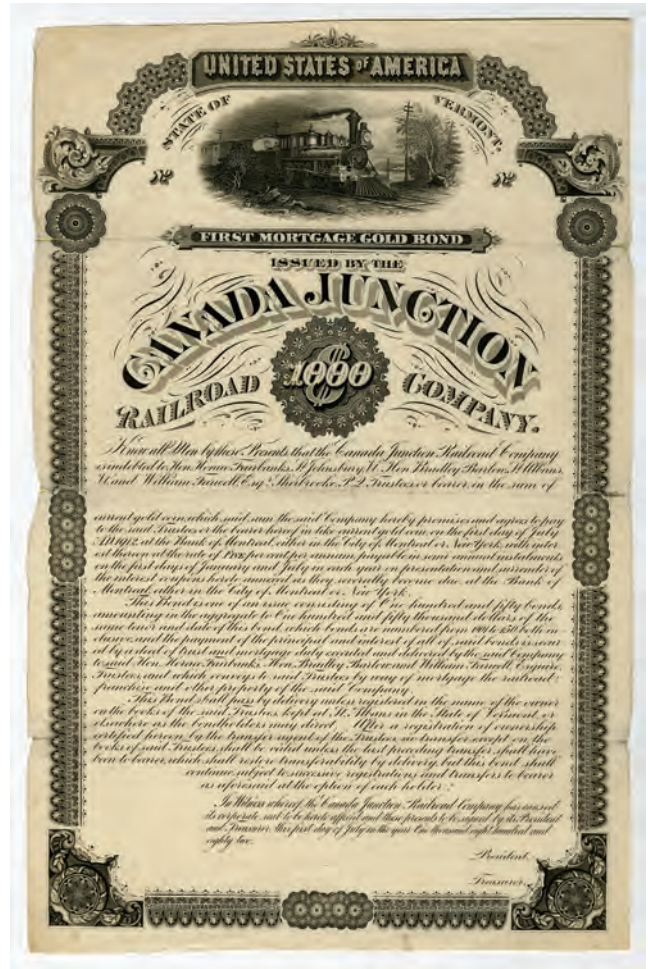 UNITED STATES OF AMERICA
STATE OF VERMONT.
No No
FIRST MORTGAGE GOLD BOND
ISSUED BY THE
CANADA JUNCTION
$1000
RAILROAD COMPANY.
Know all Men by these Presents, that the Canada Junction Railroad Company
is indebted to Hon. Horace Fairbanks, St Johnsbury, Vt. Hon. Bradley Barlow, St Albans,
Vt. and William Farwell, Esqr. Sherbrooke, P.Q. Trustees or bearer, in the sum of
current gold coin, which said sum the said Company hereby promises and agrees to pay
to the said Trustees or the bearer hereof in like current gold coin on the first day of July
A.D. 1912, at the Bank of Montreal, either in the City of Montreal or New York, with inter
est thereon at the rate of FIVE per cent per annum, payable in semi-annual instalments
on the first days of January and July in each year on presentation and surrender of
the interest coupons hereto annexed as they severally become due, at the Bank of
Montreal, either in the City of Montreal or New York.
This Bond is one of an issue consisting of One hundred and fifty bonds,
amounting in the aggregate to One hundred and fifty thousand dollars of the
same tenor and date of this bond, which bonds are numbered from to 250 both in
clusive, and the payment of the principal and interest of all of said bonds is secur
ed by a deed of trust and mortgage duly executed and delivered by the said Company
to said Hon. Horace Fairbanks, Hon. Bradley Barlow and William Farwell, Esquire,
Trustees, and which conveys to said Trustees by way of mortgage the railroad,
franchise and other property of the said Company.
This Bond shall pass by delivery unless registered in the name of the owner
on the books of the said Trustees, kept at St. Albans in the State of Vermont, or
elsewhere as the bondholders may direct. After a registration of ownership
certified hereon by the transfer agent of the Trustees, no transfer except on the
books of said Trustees, shall be valid unless the last preceding transfer shall have
been to bearer, which shall restore transferability by delivery, but this bond shall
continue subject to successive registrations and transfers to bearer
as aforesaid at the option of each holder.
In Witness whereof, the Canada Junction Railroad Company has caused
its corporate seal to be hereto affixed and these presents to be signed by its President
and Treasurer, this first day of July in the year One thousand eight hundred and
eighty two.
President.
Treasurer.